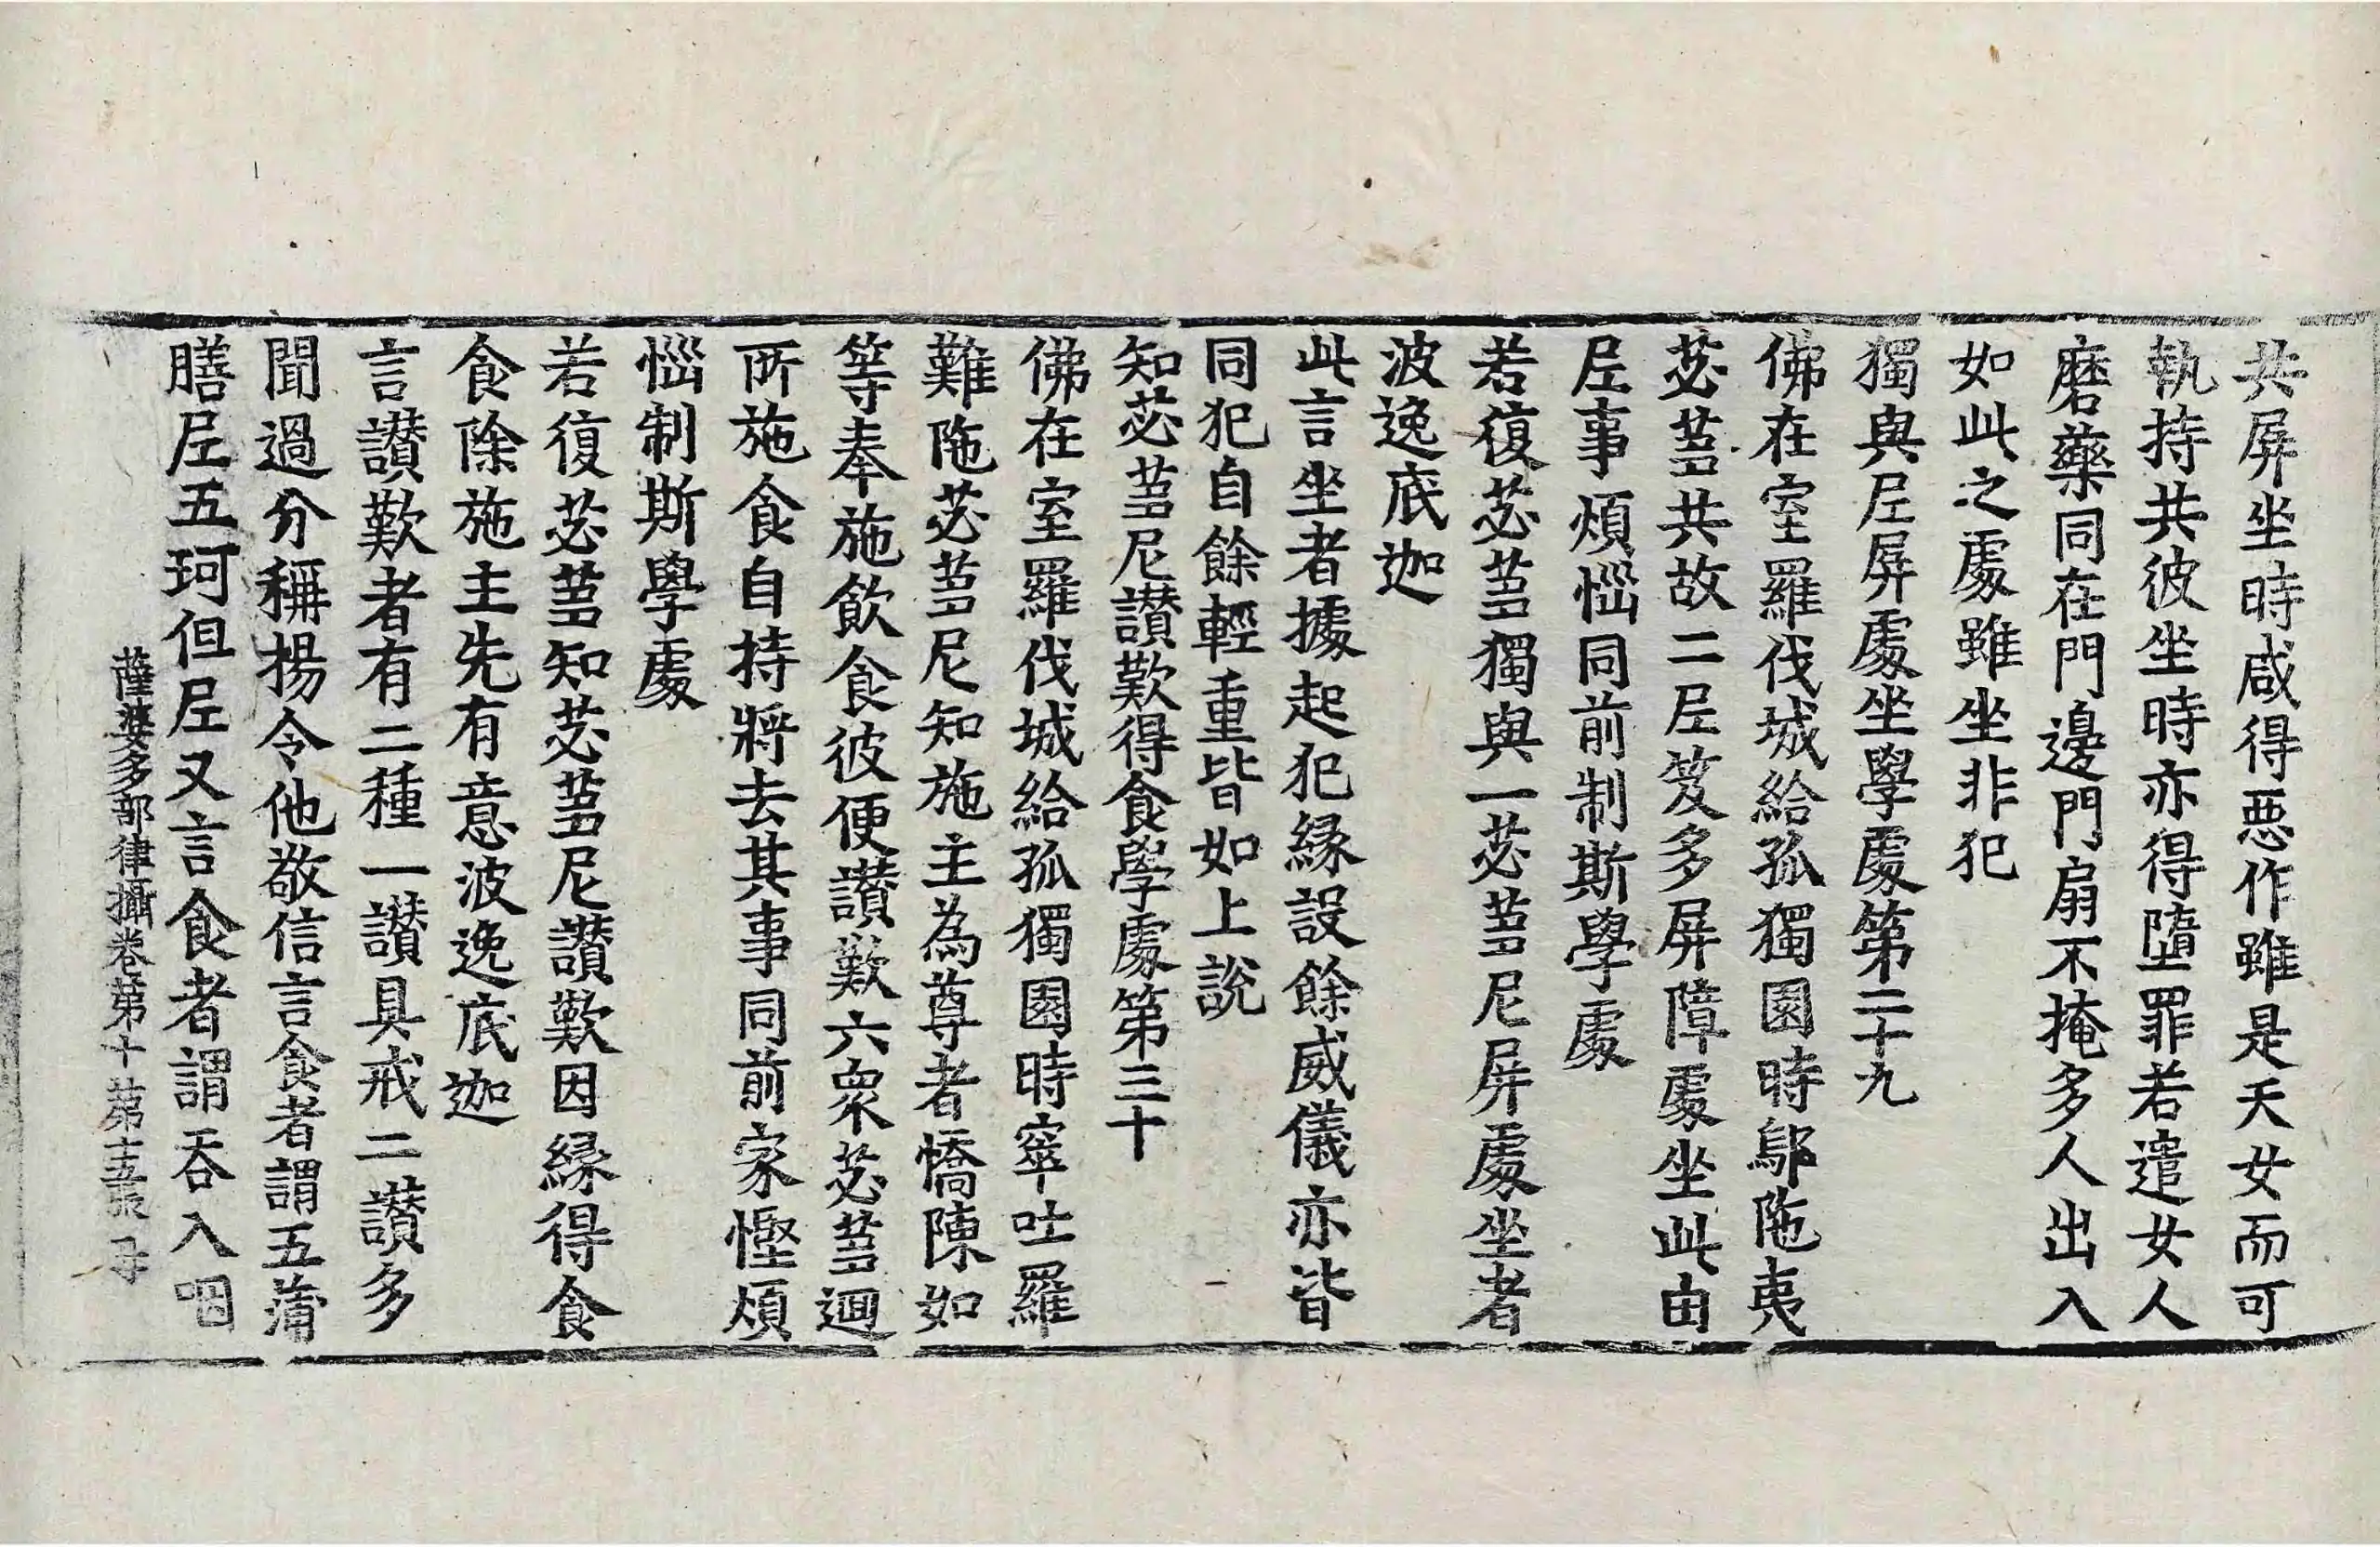 共屏坐時咸得惡作雖是天女而可
執持共彼坐時亦得墮罪若遣女人
磨藥同在門邊門扇不掩多人出入
如此之處雖坐非犯
獨與尼屏處坐學處第二十九
佛在室羅伐城給孤獨園時鄔陁夷
苾芻共故二尼笈多屏障處坐此由
尼事煩惱同前制斯學處
若復苾芻獨與一苾芻尼屏處坐者
波逸底迦
此言坐者據起犯緣設餘威儀亦皆
同犯自餘輕重皆如上說
知苾芻尼讃歎得食學處第三十
佛在室羅伐城給孤獨園時窣吐羅
難陁苾芻尼知施主為尊者憍陳如
等奉施飲食彼便讃歎六衆苾芻迴
所施食自持將去其事同前家慳煩
惱制斯學處
若復苾芻知苾芻尼讃歎因緣得食
食除施主先有意波逸底迦
言讃歎者有二種一讃具戒二讃多
聞過分稱揚令他敬信言食者謂五蒲
膳尼五珂但尼又言食者謂吞入咽
薩婆多部律攝卷第十 第十五張 母